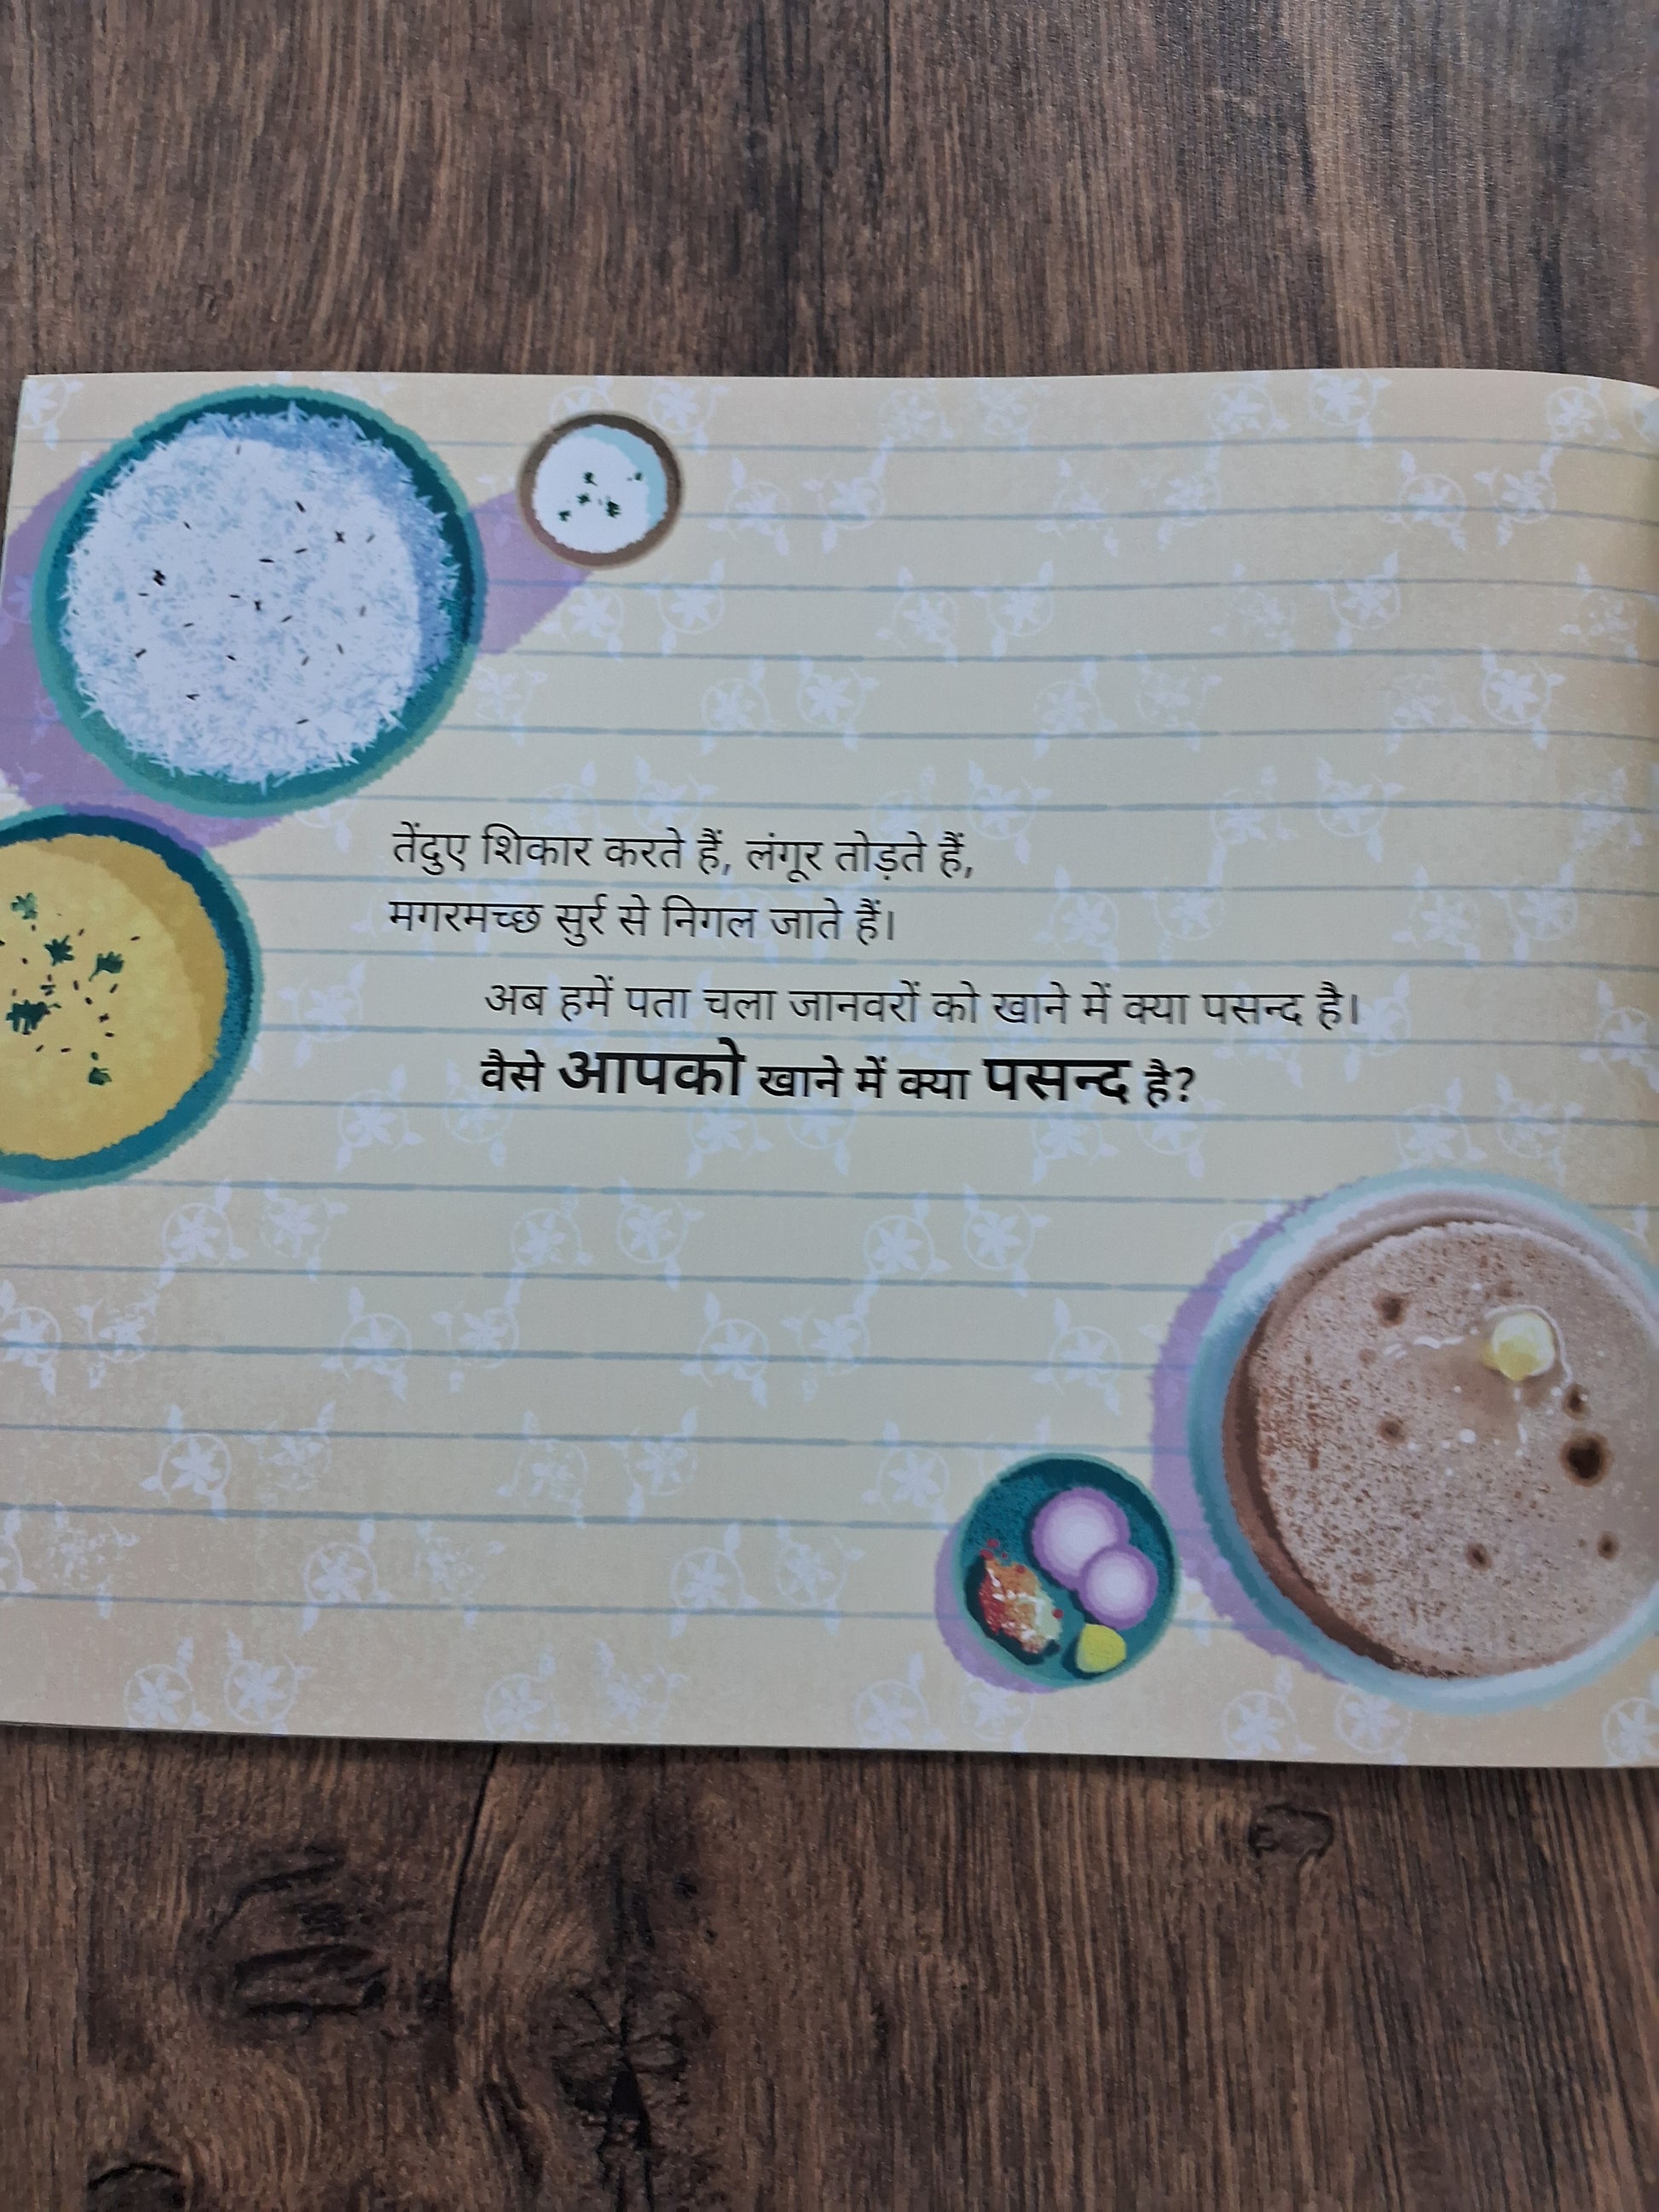 तेंदुए शिकार करते हैं, लंगूर तोड़ते हैं,
मगरमच्छ सुर्र से निगल जाते हैं।
अब हमें पता चला जानवरों को खाने में क्या पसन्द है।
वैसे आपको खाने में क्या पसन्द है?